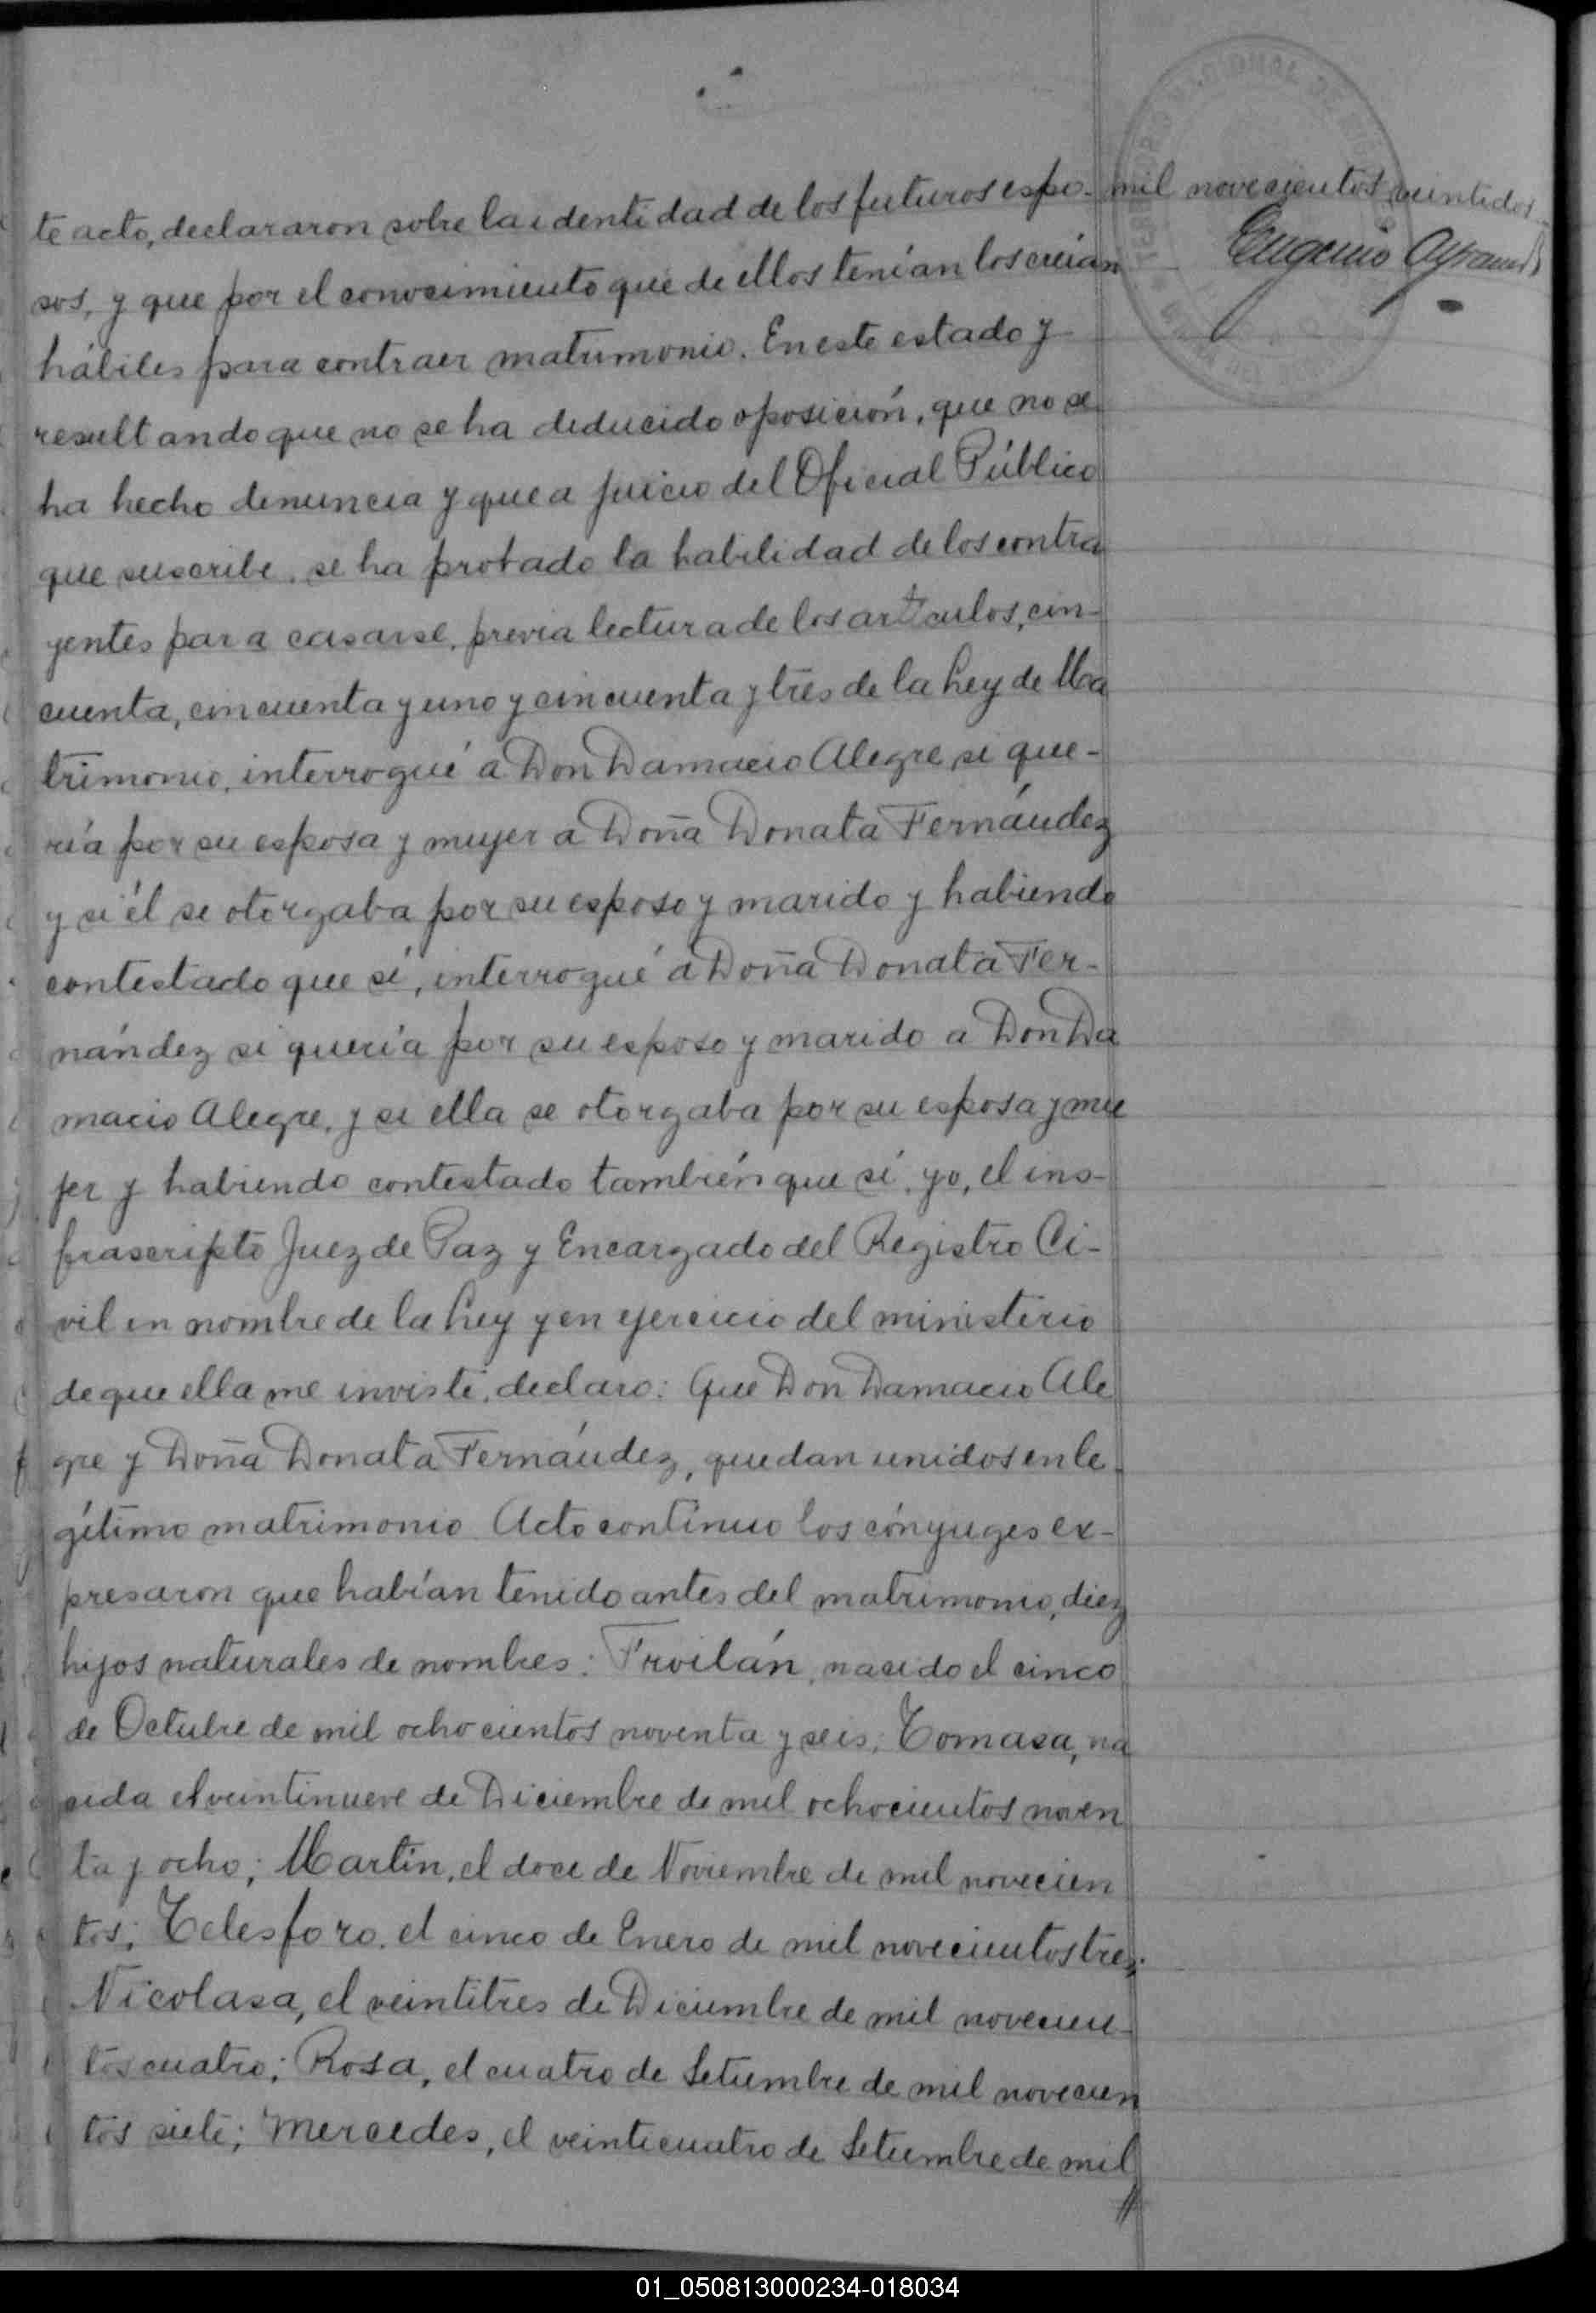 te acto, declararon sobre la identidad de los futuros espo-
sos, y que por el conocimiento que de ellos tenían los creían
hábiles para contraer matrimonio. En este estado y
resultando que no se ha deducido oposición, que no se
ha hecho denuncia y que a juicio del Oficial Público
que suscribe, se ha probado la habilidad de los contra
yentes para casarse, previa lectura de los artículos, cin-
cuenta, cincuenta y uno y cincuenta y tres de la Ley de Ma
trimonio, interrogué á Don Damacio Alegre si que-
ría por su esposa y mujer a Doña Donata Fernández
y si él se otorgaba por su esposo y marido y habiendo
contestado que sí, interrogué á Doña Donata Fer-
nández si quería por su esposo y marido a Don Da
macio Alegre, y si ella se otorgaba por su esposa y mu
jer y habiendo contestado también que sí, yo, el ins-
frascripto Juez de Paz y Encargado del Registro Ci-
vil en nombre de la Ley y en ejercicio del ministerio
de que ella me inviste, declaro: Que Don Damacio Ale
gre y Doña Donata Fernández, quedan unidos en le-
gítimo matrimonio. Acto contínuo los cónyuges ex-
presaron que habían tenido antes del matrimonio, diez
hijos naturales de nombres: Froilán, nacido el cinco
de Octubre de mil ochocientos noventa y seis; Tomasa, na
cida el veintinueve de Diciembre de mil ochocientos noven
ta y ocho; Martín, el doce de Noviembre de mil novecien
tos; Telesforo, el cinco de Enero de mil novecientos tres;
Nicolasa, el veintitres de Diciembre de mil novecien-
tos cuatro; Rosa, el cuatro de Setiembre de mil novecien
tos siete; Mercedes, el veinticuatro de Setiembre de mil
//
mil novecientos veintidos
Eugenio
01_050813000234-018034